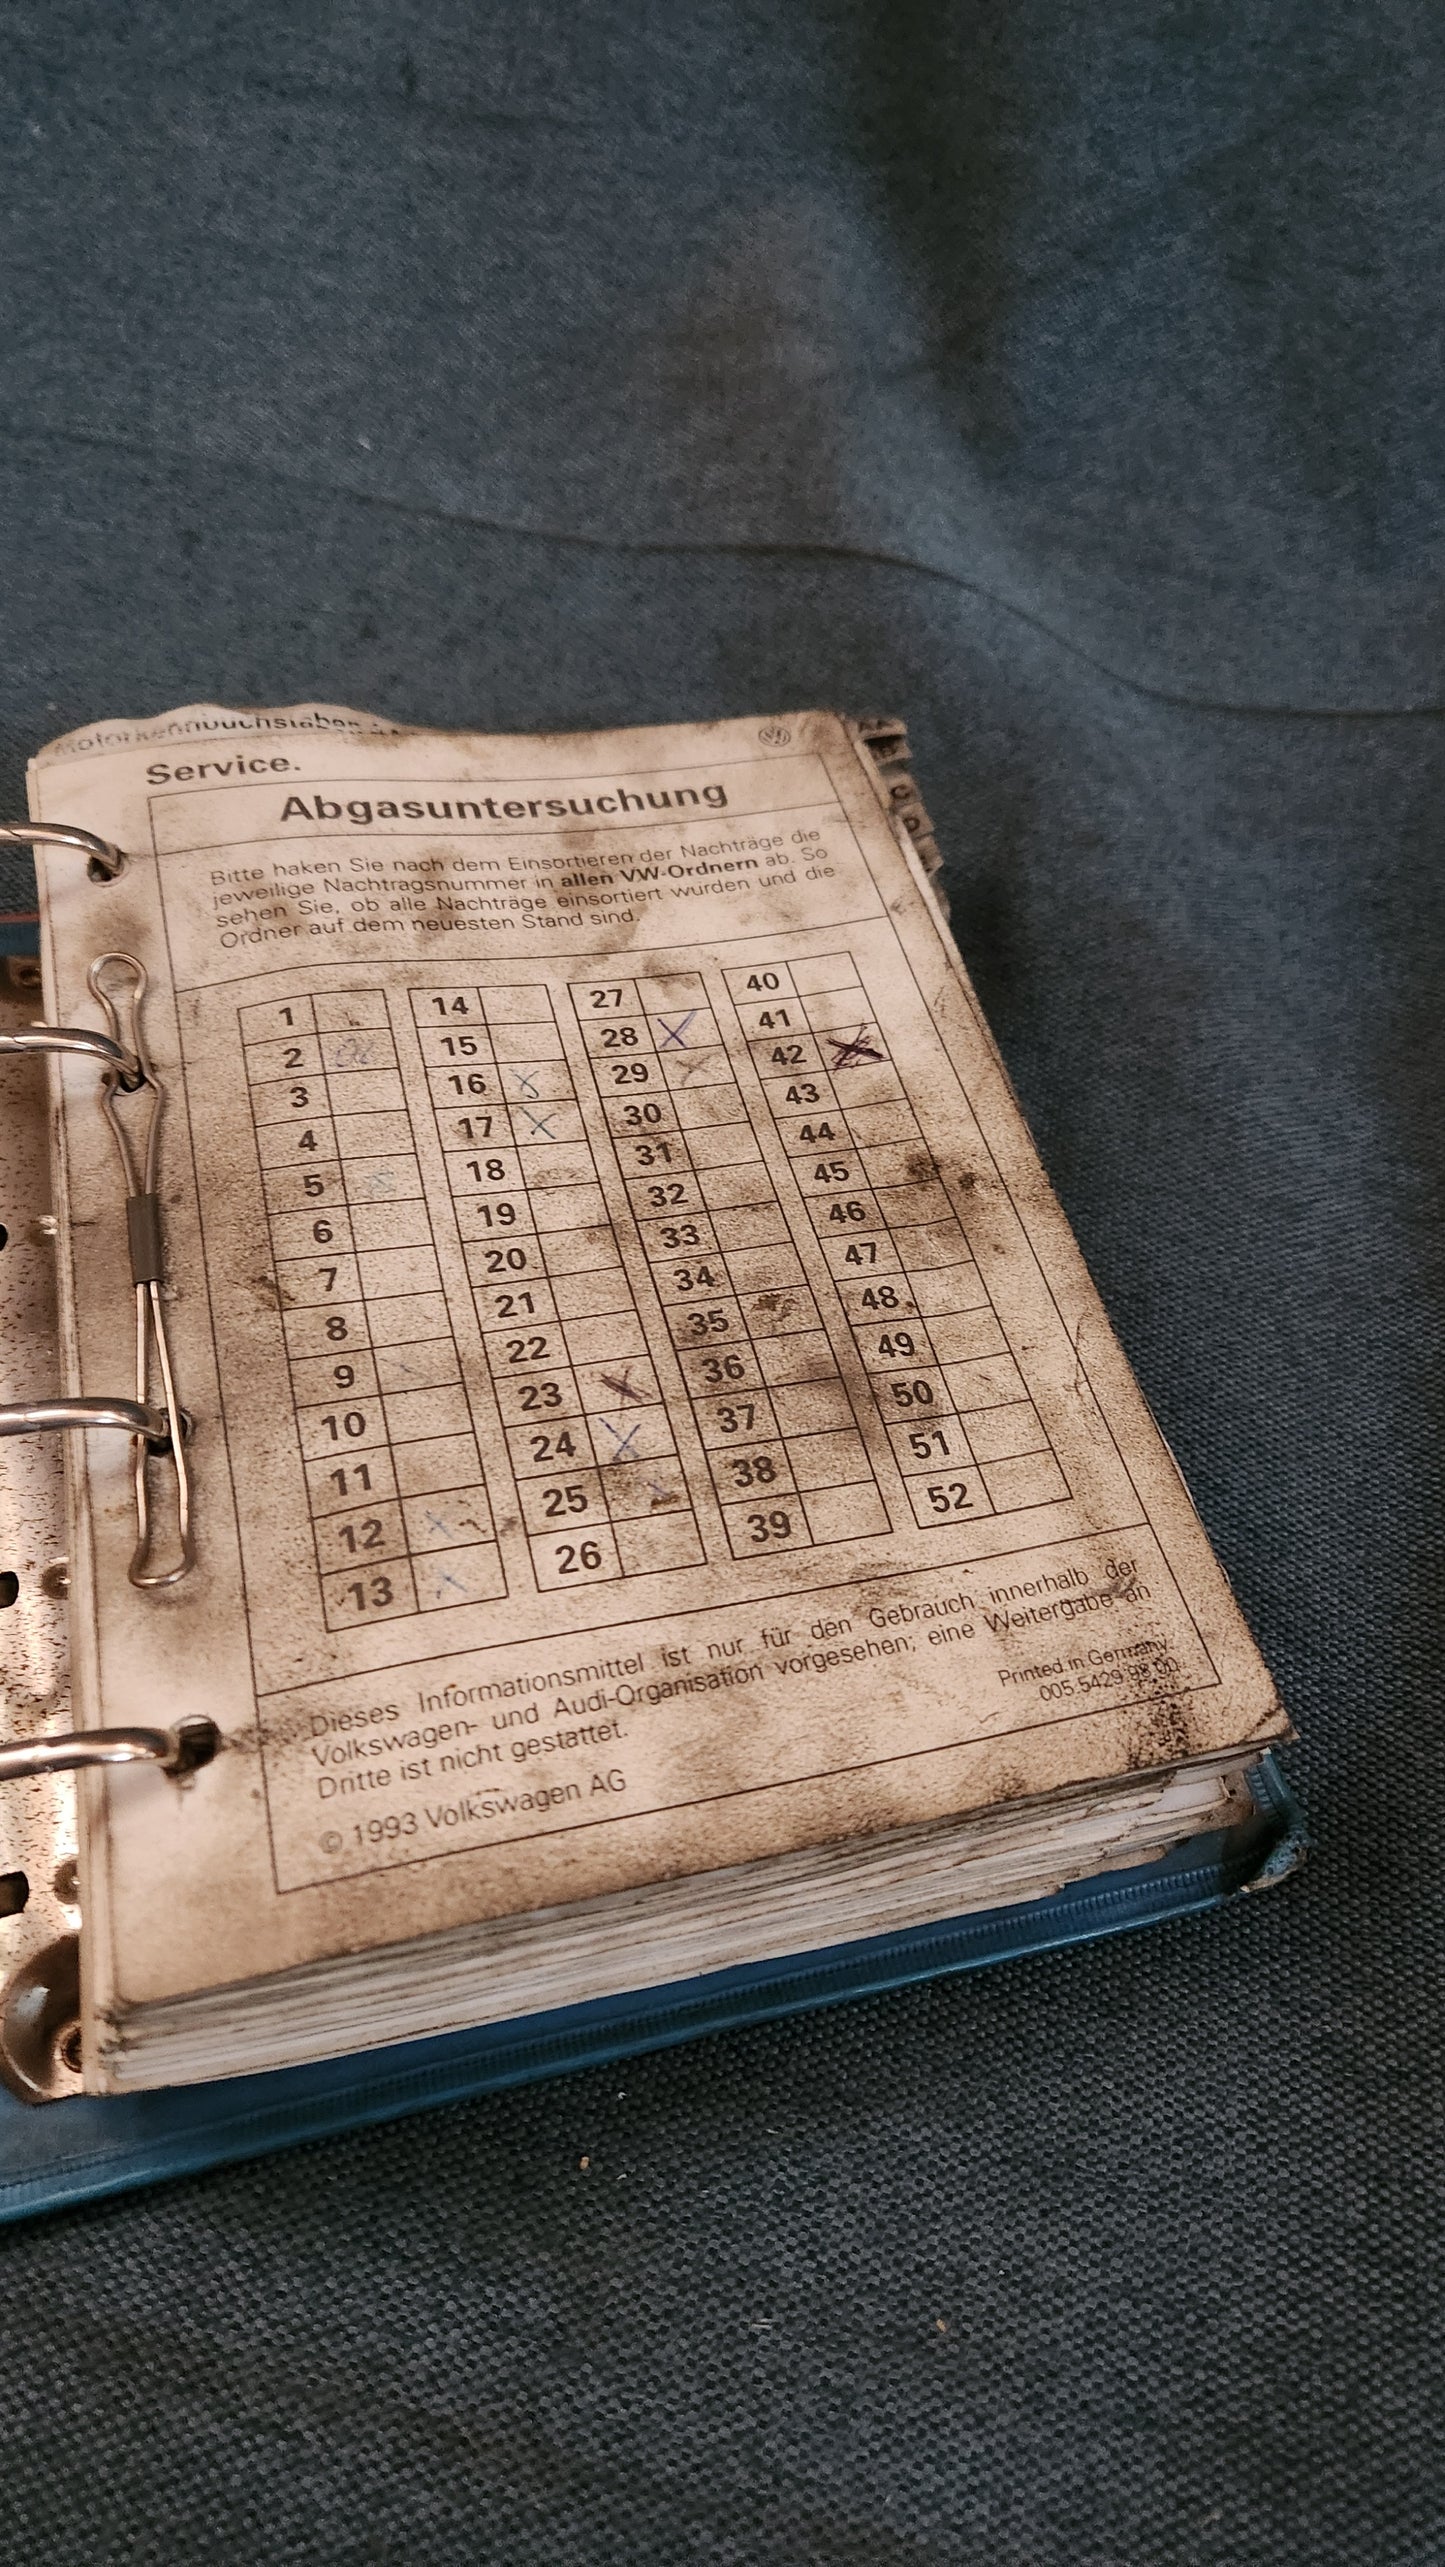 Service.
Abgasuntersuchung
Bitte haken Sie nach dem Einsortieren der Nachträge die
jeweilige Nachtragsnummer in allen VW-Ordnern ab. So
sehen Sie, ob alle Nachträge einsortiert wurden und die
Ordner auf dem neuesten Stand sind.
1 14 27 40
2 15 28 X 41
3 16 X 29 X 42 X
4 17 X 30 43
5 18 31 44
6 19 32 45
7 20 33 46
8 21 34 47
9 22 35 48
10 23 X 36 49
11 24 X 37 50
12 X 25 X 38 51
13 X 26 39 52
Dieses Informationsmittel ist nur für den Gebrauch innerhalb der
Volkswagen- und Audi-Organisation vorgesehen; eine Weitergabe an
Dritte ist nicht gestattet.
Printed in Germany
© 1993 Volkswagen AG
C
D